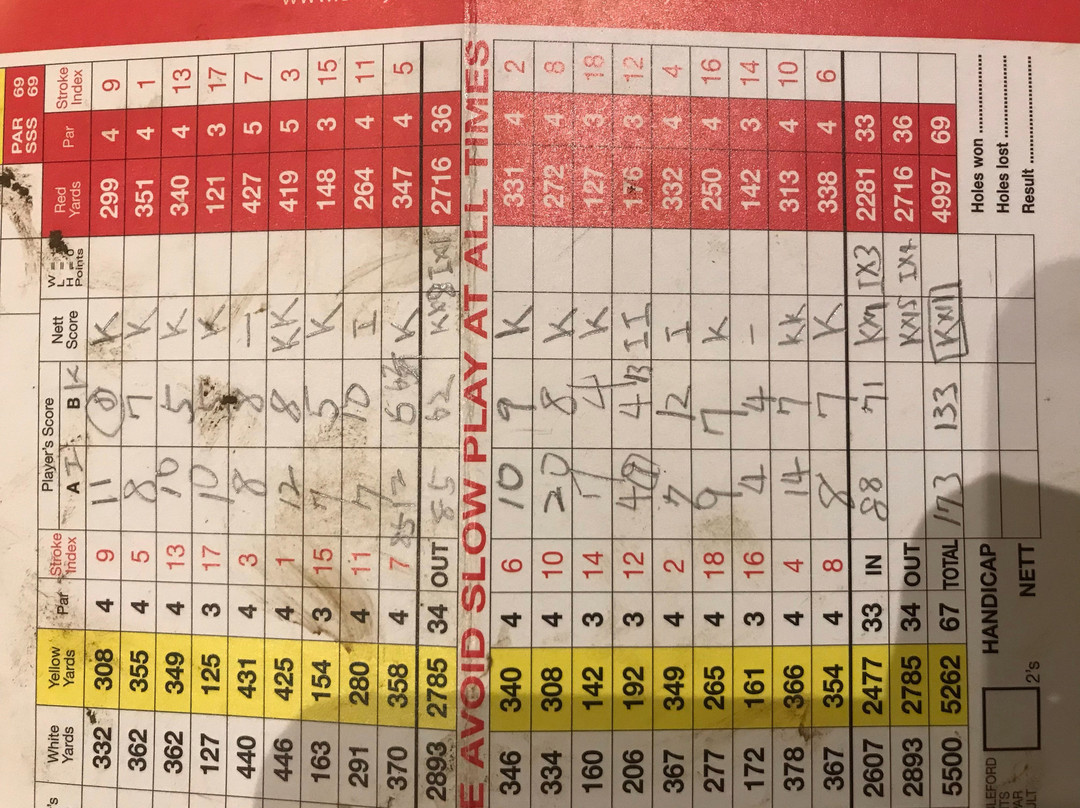 PAR 69
SSS 69
White Yards Yellow Yards Par Stroke Index Player's Score A I B K Nett Score W = + L = H = Points Red Yards Par Stroke Index
332 308 4 9 11 8 K 299 4 9
362 355 4 5 8 7 K 351 4 1
362 349 4 13 10 5 K 340 4 13
127 125 3 17 10 K 121 3 17
440 431 4 3 8 8 – 427 5 7
446 425 4 1 12 8 KK 419 5 3
163 154 3 15 7 5 K 148 3 15
291 280 4 11 7 10 I 264 4 11
370 358 4 7 6 K 347 4 5
2893 2785 34 OUT 85 62 2716 36
E AVOID SLOW PLAY AT ALL TIMES
346 340 4 6 10 9 K 331 4 2
334 308 4 10 20 8 K 272 4 8
160 142 3 14 4 K 127 3 18
206 192 3 12 4 II 176 3 12
367 349 4 2 7 12 I 332 4 4
277 265 4 18 9 7 K 250 4 16
172 161 3 16 4 4 – 142 3 14
378 366 4 4 14 7 KK 313 4 10
367 354 4 8 8 7 K 338 4 6
2607 2477 33 IN 88 71 IX3 2281 33
2893 2785 34 OUT 2716 36
5500 5262 67 TOTAL 173 133 4997 69
HANDICAP
NETT
2's
Holes won
Holes lost
Result